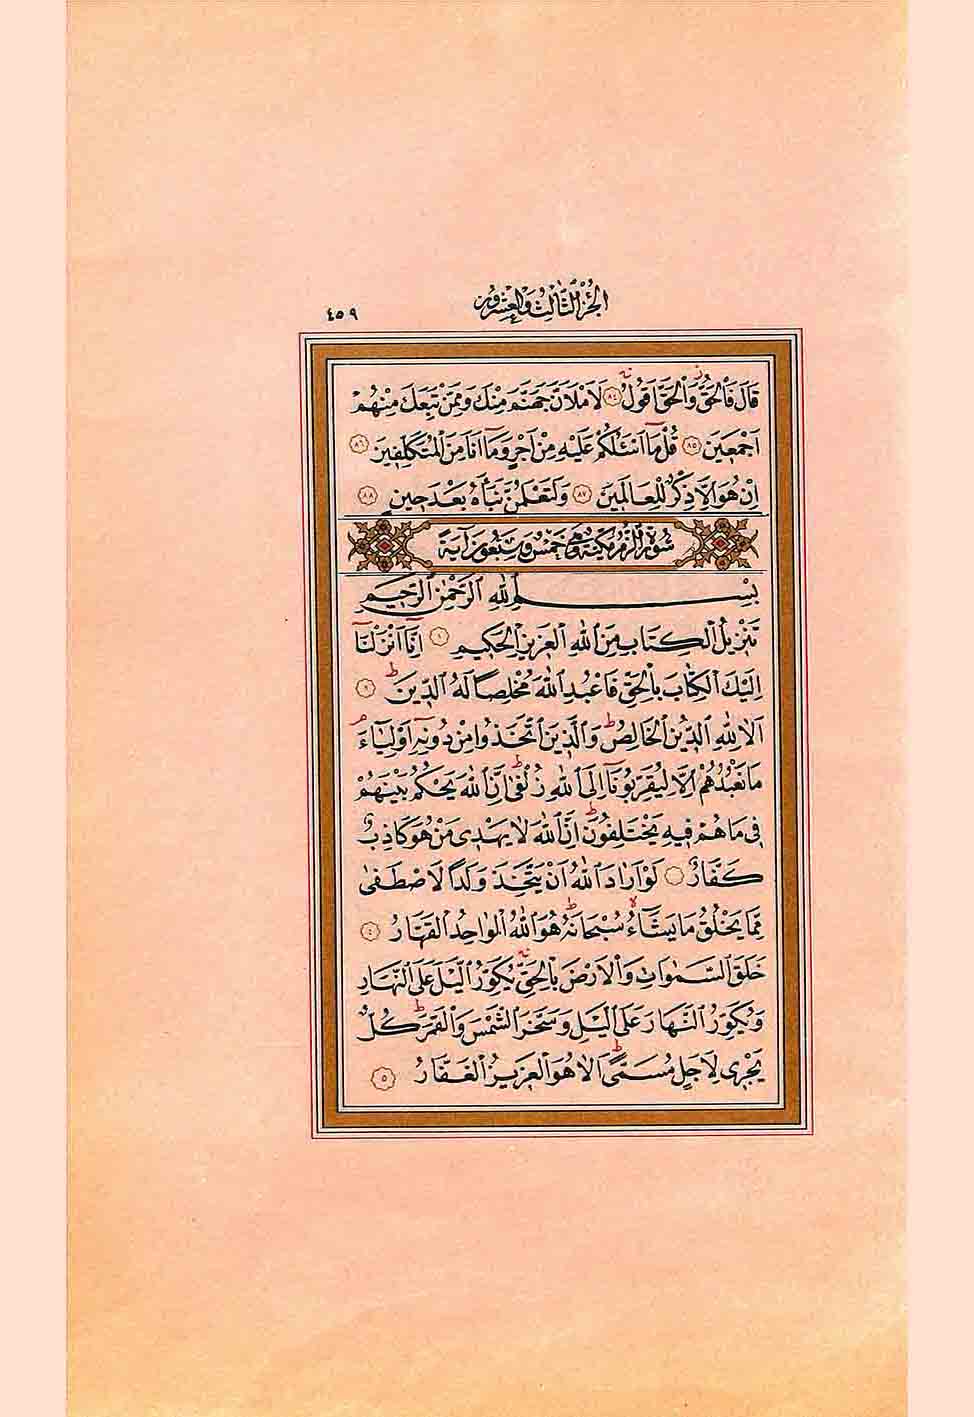 الجزء الثالث والعشرون
٤٥٩
قَالَ فَالْحَقُّ وَالْحَقَّ اَقُولُ ﴿٨٤﴾ لَاَمْلَاَنَّ جَهَنَّمَ مِنْكَ وَمِمَّنْ تَبِعَكَ مِنْهُمْ
اَجْمَعِينَ ﴿٨٥﴾ قُلْ مَآ اَسْـَٔلُكُمْ عَلَيْهِ مِنْ اَجْرٍ وَمَآ اَنَا۬ مِنَ الْمُتَكَلِّفِينَ ﴿٨٦﴾
اِنْ هُوَ اِلَّا ذِكْرٌ لِلْعَالَمِينَ ﴿٨٧﴾ وَلَتَعْلَمُنَّ نَبَاَهُ بَعْدَ حِينٍ ﴿٨٨﴾
سُورَةُ الزُّمَرِ مَكِّيَّةٌ وَهِيَ خَمْسٌ وَسَبْعُونَ اٰيَةً
بِسْمِ اللّٰهِ الرَّحْمٰنِ الرَّحِيمِ
تَنْزِيلُ الْكِتَابِ مِنَ اللّٰهِ الْعَزِيزِ الْحَكِيمِ ﴿١﴾ اِنَّآ اَنْزَلْنَآ
اِلَيْكَ الْكِتَابَ بِالْحَقِّ فَاعْبُدِ اللّٰهَ مُخْلِصًا لَهُ الدِّينَ ﴿٢﴾
اَلَا لِلّٰهِ الدِّينُ الْخَالِصُ وَالَّذِينَ اتَّخَذُوا مِنْ دُونِهِٓ اَوْلِيَآءَ
مَا نَعْبُدُهُمْ اِلَّا لِيُقَرِّبُونَآ اِلَى اللّٰهِ زُلْفٰى اِنَّ اللّٰهَ يَحْكُمُ بَيْنَهُمْ
فِي مَا هُمْ فِيهِ يَخْتَلِفُونَ اِنَّ اللّٰهَ لَا يَهْدِي مَنْ هُوَ كَاذِبٌ
كَفَّارٌ لَوْ اَرَادَ اللّٰهُ اَنْ يَتَّخِذَ وَلَدًا لَاصْطَفٰى
مِمَّا يَخْلُقُ مَا يَشَآءُ سُبْحَانَهُ هُوَ اللّٰهُ الْوَاحِدُ الْقَهَّارُ ﴿٤﴾
خَلَقَ السَّمٰوَاتِ وَالْاَرْضَ بِالْحَقِّ يُكَوِّرُ الَّيْلَ عَلَى النَّهَارِ
وَيُكَوِّرُ النَّهَارَ عَلَى الَّيْلِ وَسَخَّرَ الشَّمْسَ وَالْقَمَرَ كُلٌّ
يَجْرِي لِاَجَلٍ مُسَمًّى اَلَا هُوَ الْعَزِيزُ الْغَفَّارُ ﴿٥﴾